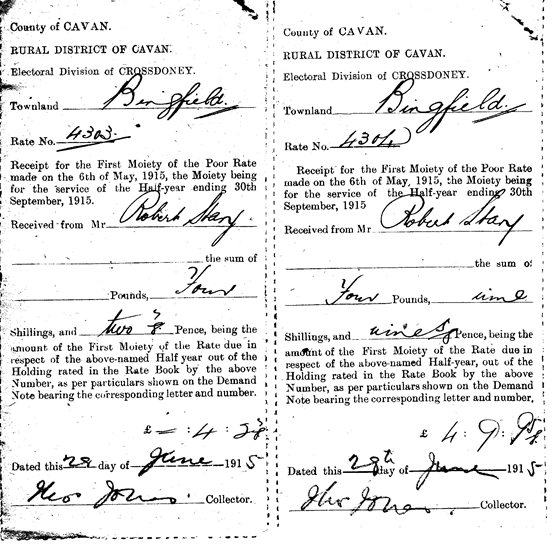 County of CAVAN.
RURAL DISTRICT OF CAVAN.
Electoral Division of CROSSDONEY.
Townland Bingfield.
Rate No. 4303.
Receipt for the First Moiety of the Poor Rate
made on the 6th of May, 1915, the Moiety being
for the service of the Half-year ending 30th
September, 1915.
Received from Mr Robert Story.
the sum of
Pounds, Four
Shillings, and two Pence, being the
amount of the First Moiety of the Rate due in
respect of the above-named Half year out of the
Holding rated in the Rate Book by the above
Number, as per particulars shown on the Demand
Note bearing the corresponding letter and number.
£ — : 4 : 2
Dated this 28 day of June 1915
Jones. Collector.
County of CAVAN.
RURAL DISTRICT OF CAVAN.
Electoral Division of CROSSDONEY.
Townland Bingfield.
Rate No. 4304
Receipt for the First Moiety of the Poor Rate
made on the 6th of May, 1915, the Moiety being
for the service of the Half-year ending 30th
September, 1915
Received from Mr Robert Story
the sum of
Four Pounds, nine
Shillings, and nine Pence, being the
amount of the First Moiety of the Rate due in
respect of the above-named Half-year, out of the
Holding rated in the Rate Book by the above
Number, as per particulars shown on the Demand
Note bearing the corresponding letter and number.
£ 4 : 9 : 9
Dated this 28th day of June 1915
Jones. Collector.